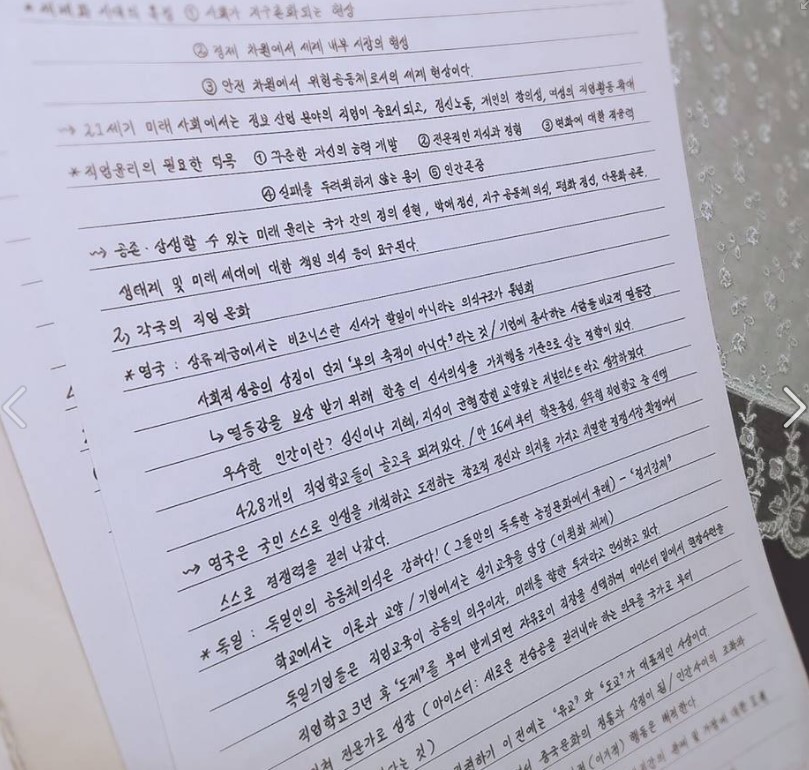 * 세계화 시대의 특징 ① 사회가 지구촌화되는 현상
② 경제 차원에서 세계 내부 시장의 형성
③ 안전 차원에서 위험공동체로서의 세계 현상이다.
~> 21세기 미래 사회에서는 정보 산업 분야의 직업이 중요시되고, 정신노동, 개인의 창의성, 여성의 직업활동 확대
* 직업윤리의 필요한 덕목 ① 꾸준한 자신의 능력 개발 ② 전문적인 지식과 경험 ③ 변화에 대한 적응력
④ 실패를 두려워하지 않는 용기 ⑤ 인간존중
~> 공존·상생할 수 있는 미래 윤리는 국가 간의 정의 실현, 박애 정신, 지구 공동체 의식, 평화 정신, 다문화 공존.
생태계 및 미래 세대에 대한 책임 의식 등이 요구된다.
2) 각국의 직업 문화
* 영국 : 상류계급에서는 비즈니스란 신사가 할일이 아니라는 의식구조가 통념화
사회적 성공의 상징이 단지 '부의 축적이 아니다.' 라는 것 / 기업에 종사하는 사람들 비교적 열등감
↳ 열등감을 보상 받기 위해 한층 더 신사의식을 가치행동 기준으로 삼는 경향이 있다.
우수한 인간이란? 심신이나 지혜, 지식이 균형잡힌 교양있는 제널리스트라고 생각하였다.
428개의 직업학교들이 골고루 퍼져있다. / 만 16세부터 학문중심, 실무형 직업학교 중 선택
~> 영국은 국민 스스로 인생을 개척하고 도전하는 창조적 정신과 의지를 가지고 치열한 경쟁시장 환경에서
스스로 경쟁력을 길러 나갔다.
* 독일 : 독일인의 공동체의식은 강하다! (그들만의 독특한 농경문화에서 유래) - '경지강제'
학교에서는 이론과 교양 / 기업에서는 실기교육을 담당 (이원화 체제)
독일기업들은 직업교육이 공동의 의무이자, 미래를 향한 투자라고 인식하고 있다.
직업학교 3년 후 '도제'를 부여 받게되면 자유로이 직장을 선택하여 마이스터 밑에서 현장수련을
전문가로 성장 (마이스터: 새로운 견습공을 길러내야 하는 의무를 국가로 부터
는 것)
하기 이전에는 '유교'와 '도교'가 대표적인 사상이다.
중국문화의 전통과 상징이 됨 / 인간사이의 조화와
(이기적) 행동은 배척한다